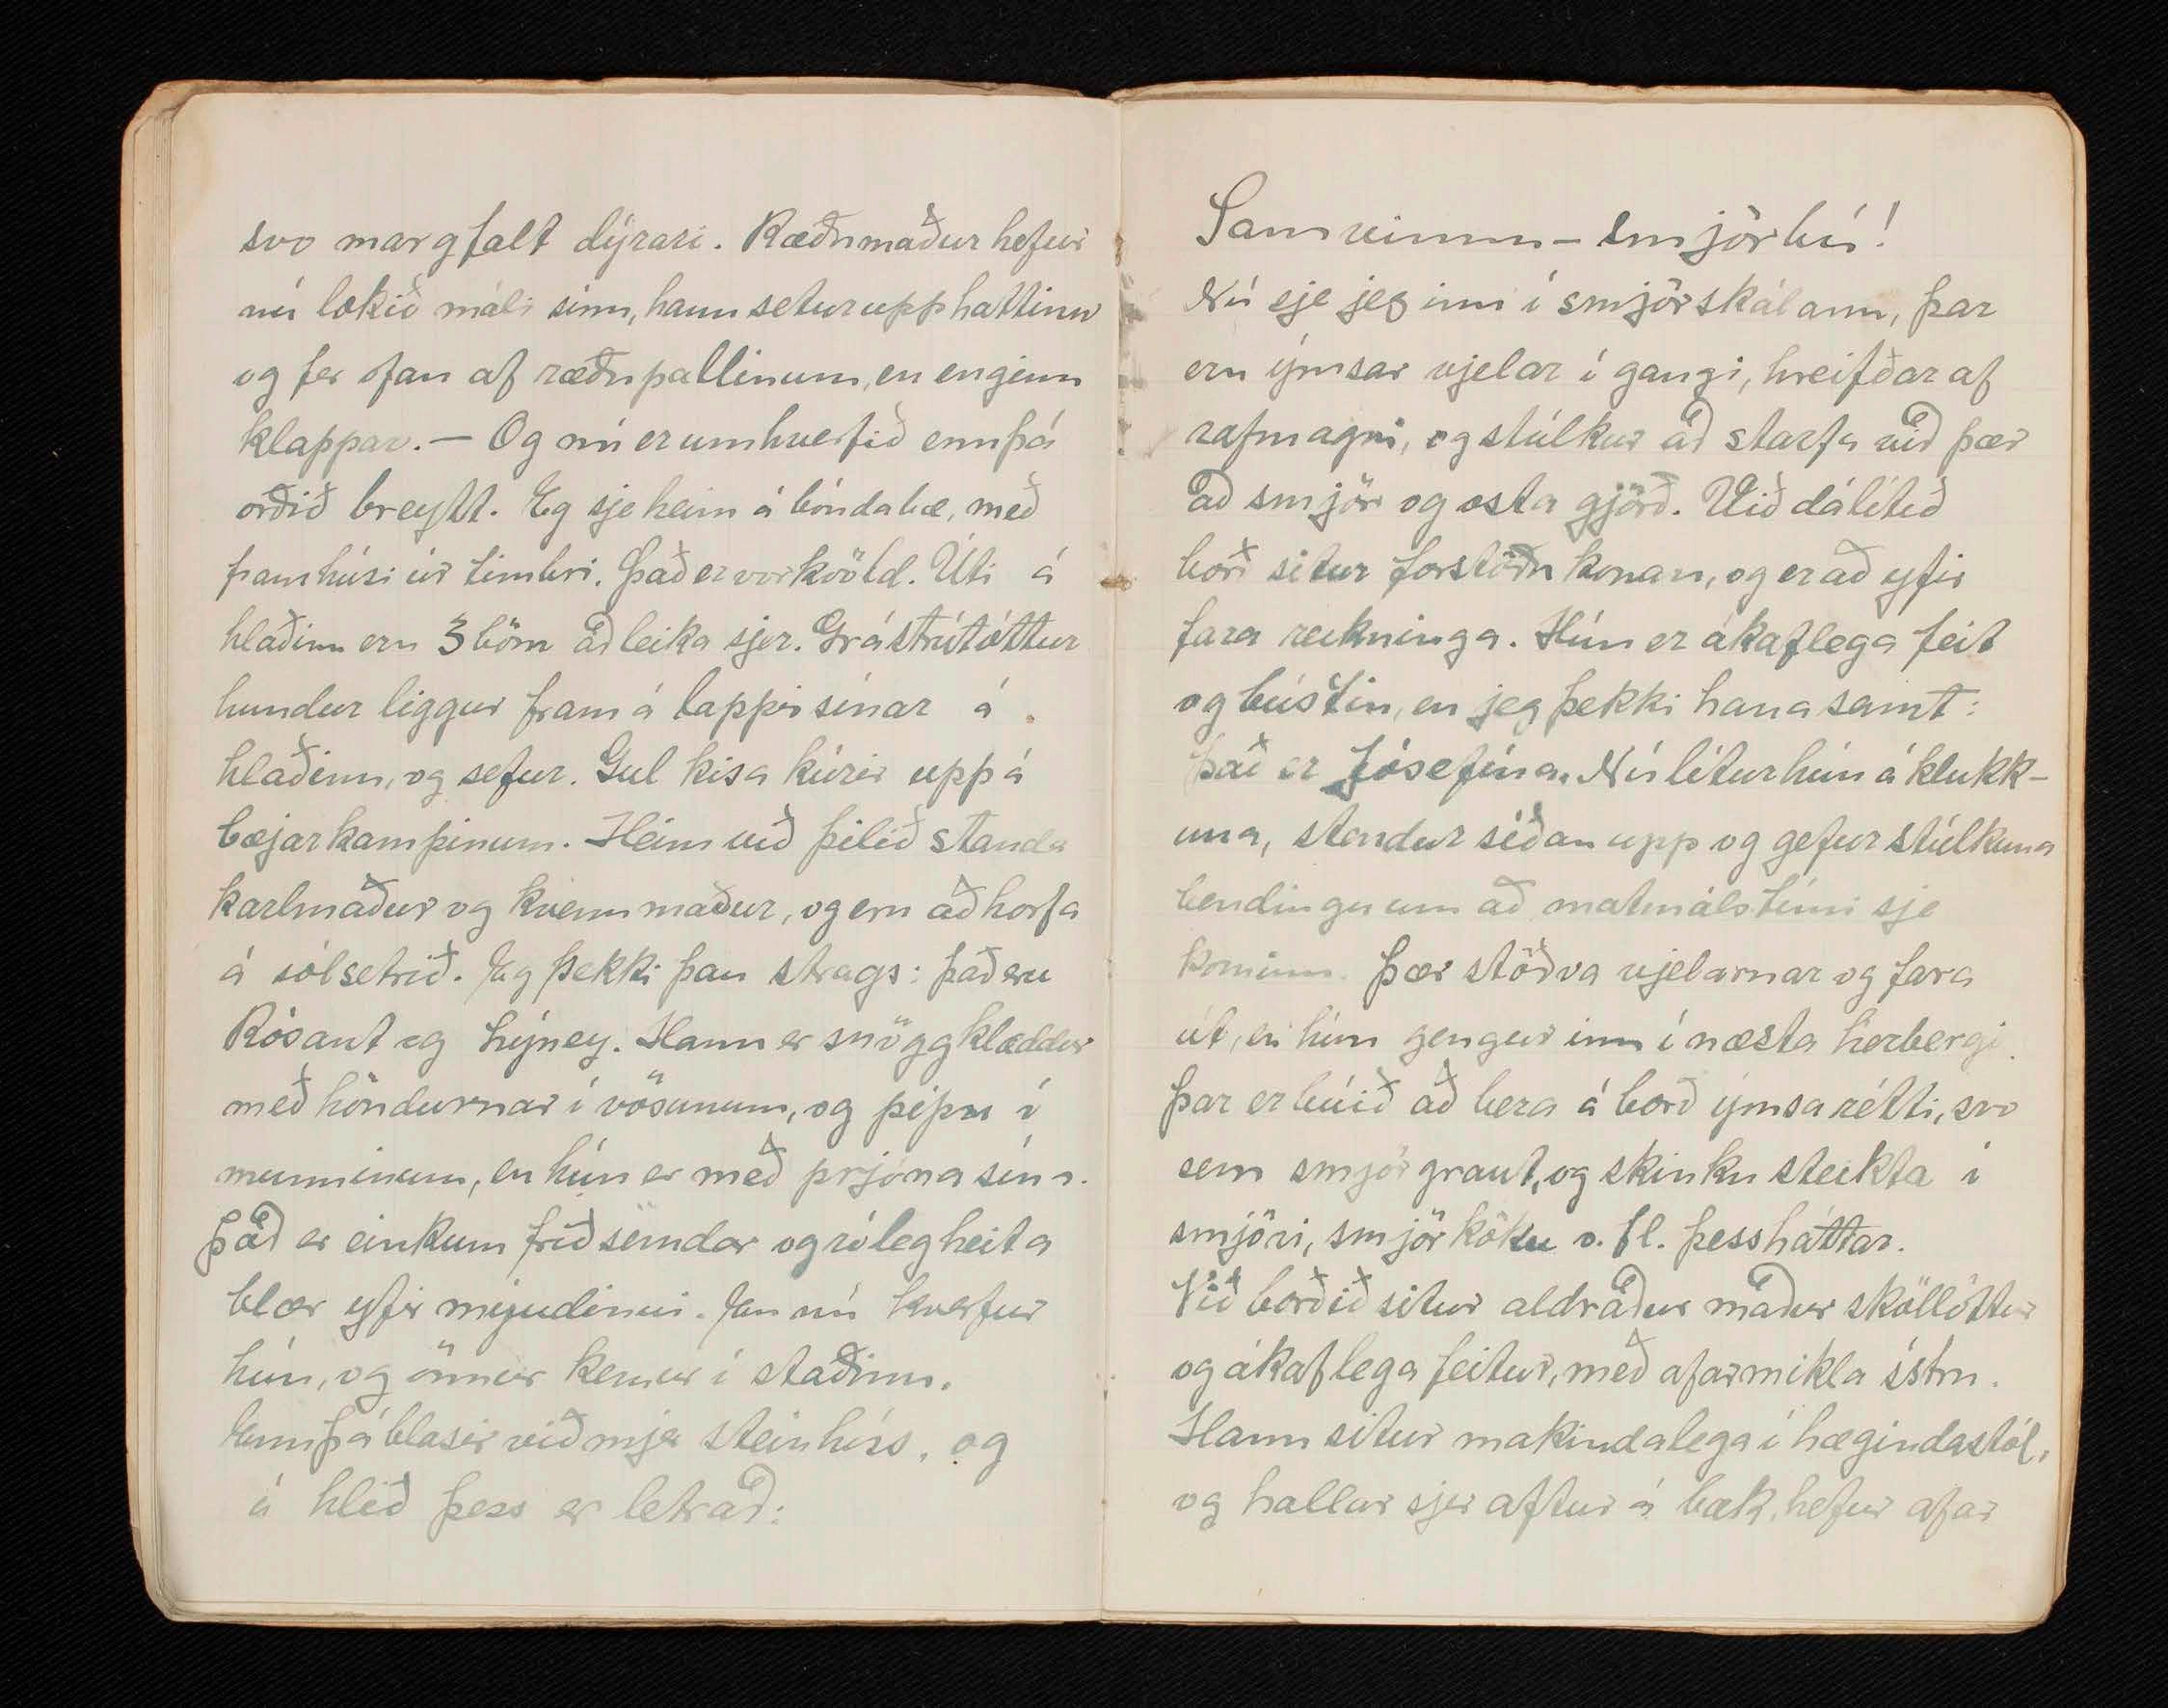 svo margfalt dýrari. Ræðumaður hefur
nú lokið máli sínu, hann setur upp hattinn
og fer ofan af ræðupallinum, en enginn
klappar. — Og nú er umhverfið ennþá
orðið breytt. Eg sje heim á bóndabæ, með
framhúsi úr timbri. Það er vorkvöld. Úti á
hlaðinu eru 3 börn að leika sjer. Grástrútóttur
hundur liggur fram á lappir sínar á
hlaðinu, og sefur. Gul kisa kúrir upp á
bæjarkampinum. Heim við þilið standa
karlmaður og kvennmaður, og eru að horfa
á sólsetrið. Eg þekki þau strags: það eru
Rósant og Þýney. Hann er snöggklæddur
með höndurnar í vösunum, og pípu í
munninum, en hún er með prjóna sína.
Það er einkum friðsemdar og rólegheita
blær yfir myndinni. En nú hverfur
hún, og önnur kemur í staðinn.
Ennþá blasir við mjer steinhús, og
á hlið þess er letrað:
Samvinnu-smjörbú!
Nú sje jeg inn í smjörskálann, þar
eru ýmsar vjelar í gangi, hreifðar af
rafmagni, og stúlkur að starfa við þær
að smjör og osta gjörð. Við dálítið
borð situr forstöðukonan, og er að yfir
fara reikninga. Hún er ákaflega feit
og bústin, en jeg þekki hana samt:
Það er Jósefína. Nú lítur hún á klukk-
una, stendur síðan upp og gefur stúlkuna
bendingu um að matmálstími sje
kominn. Þær stöðva vjelarnar og fara
út, en hún gengur inn í næsta herbergi.
Þar er búið að bera á borð ýmsa rétti, svo
sem smjörgraut, og skinku steikta í
smjöri, smjörköku o. fl. þessháttar.
Við borðið situr aldraður maður sköllóttur
og ákaflega feitur, með afarmikla ístru.
Hann situr makindalega í hægindastól,
og hallar sjer aftur á bak, hefur afar